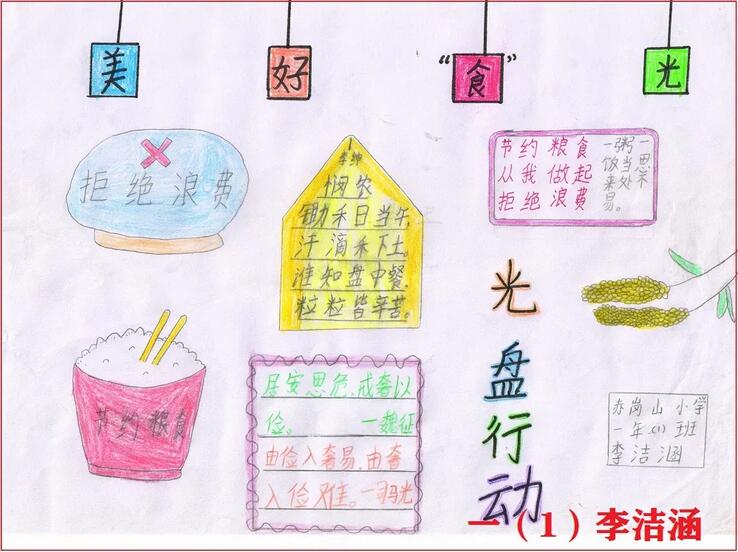 美 好 “食” 光
拒绝浪费
李绅
悯农
锄禾日当午,
汗滴禾下土。
谁知盘中餐,
粒粒皆辛苦。
节约粮食
从我做起
拒绝浪费
一粥一
饭当思
来处不
易。
节约粮食
居安思危,戒奢以
俭。 —魏征
由俭入奢易,由奢
入俭难。—司马光
光
盘
行
动
赤岗山小学
一年(1)班
李洁涵
一（1）李洁涵